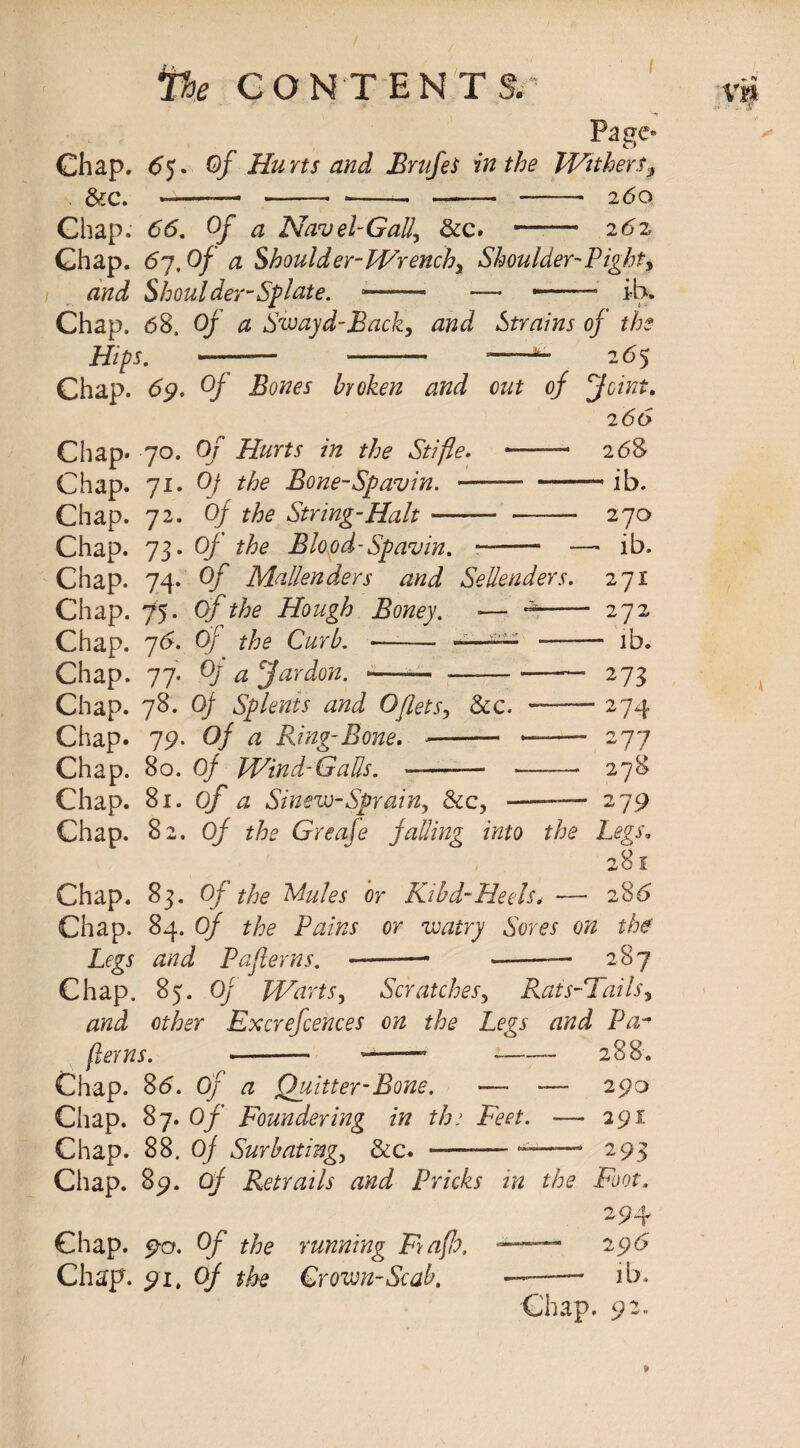 The CONTENTS.
vii
Page
Chap. 65. Of Hurts and Bruſes in the Withers,
&c. —— —— —— —— —— 260
Chap. 66. Of a Navel-Gall, &c. —— 262
Chap. 67. Of a Shoulder-Wrench, Shoulder-Pight,
and Shoulder-Splate. —— — —— ib.
Chap. 68. Of a Swayd-Back, and Strains of the
Hips. —— —— —— 265
Chap. 69. Of Bones broken and out of Joint.
266
Chap. 70. Of Hurts in the Stifle. —— 268
Chap. 71. Of the Bone-Spavin. —— —— ib.
Chap. 72. Of the String-Halt —— —— 270
Chap. 73. Of the Blood-Spavin. —— — ib.
Chap. 74. Of Mallenders and Sellenders. 271
Chap. 75. Of the Hough Boney. — —— 272
Chap. 76. Of the Curb. —— —— —— ib.
Chap. 77. Of a Jardon. —— —— —— 273
Chap. 78. Of Splents and Oſlets, &c. —— 274
Chap. 79. Of a Ring-Bone. —— —— 277
Chap. 80. Of Wind-Galls. —— —— 278
Chap. 81. Of a Sinew-Sprain, &c, —— 279
Chap. 82. Of the Greaſe falling into the Legs.
281
Chap. 83. Of the Mules or Kibd-Heels. — 286
Chap. 84. Of the Pains or watry Sores on the
Legs and Paſterns. —— —— 287
Chap. 85. Of Warts, Scratches, Rats-Tails,
and other Excreſcences on the Legs and Pa-
ſterns. —— —— —— 288.
Chap. 86. Of a Quitter-Bone. — — 290
Chap. 87. Of Foundering in the Feet. — 291
Chap. 88. Of Surbating, &c. —— —— 293
Chap. 89. Of Retrails and Pricks in the Foot.
294
Chap. 90. Of the running Fraſh. —— 296
Chap. 91. Of the Crown-Scab. —— ib.
Chap. 92.